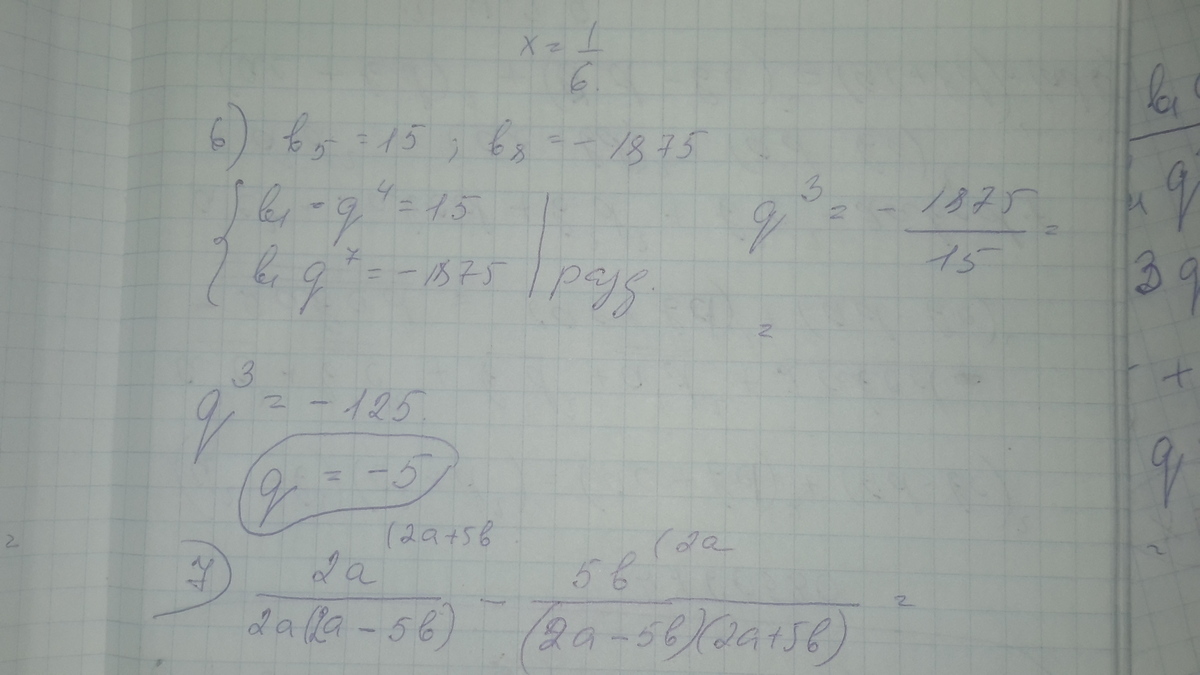 x = 1/6.
6) b₅ = 15 ; b₈ = - 1875
{ b₁ = q⁴ = 15
b₁ q⁷ = - 1875 | разд.
q³ = - 1875/15 =
=
q³ = - 125.
q = -5.
7) 2a (2a+5b / 2a(2a - 5b) - 5b (2a / (2a - 5b)(2a+5b) =